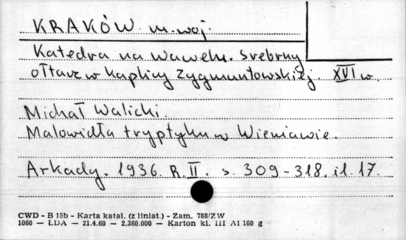 KRAKÓW m. woj.
Katedra na Wawelu. Srebrny
ołtarz w kaplicy Zygmuntowskiej. XVI w.
Michał Walicki.
Malowidła tryptyku w Wieniawie.
Arkady. 1936. R. II. s. 309-318. il. 17.
CWD - B 15b - Karta katal. (z liniat.) - Zam. 788/ZW
1060 — ŁDA — 21.4.60 — 2.360.000 — Karton kl. III A1 160 g